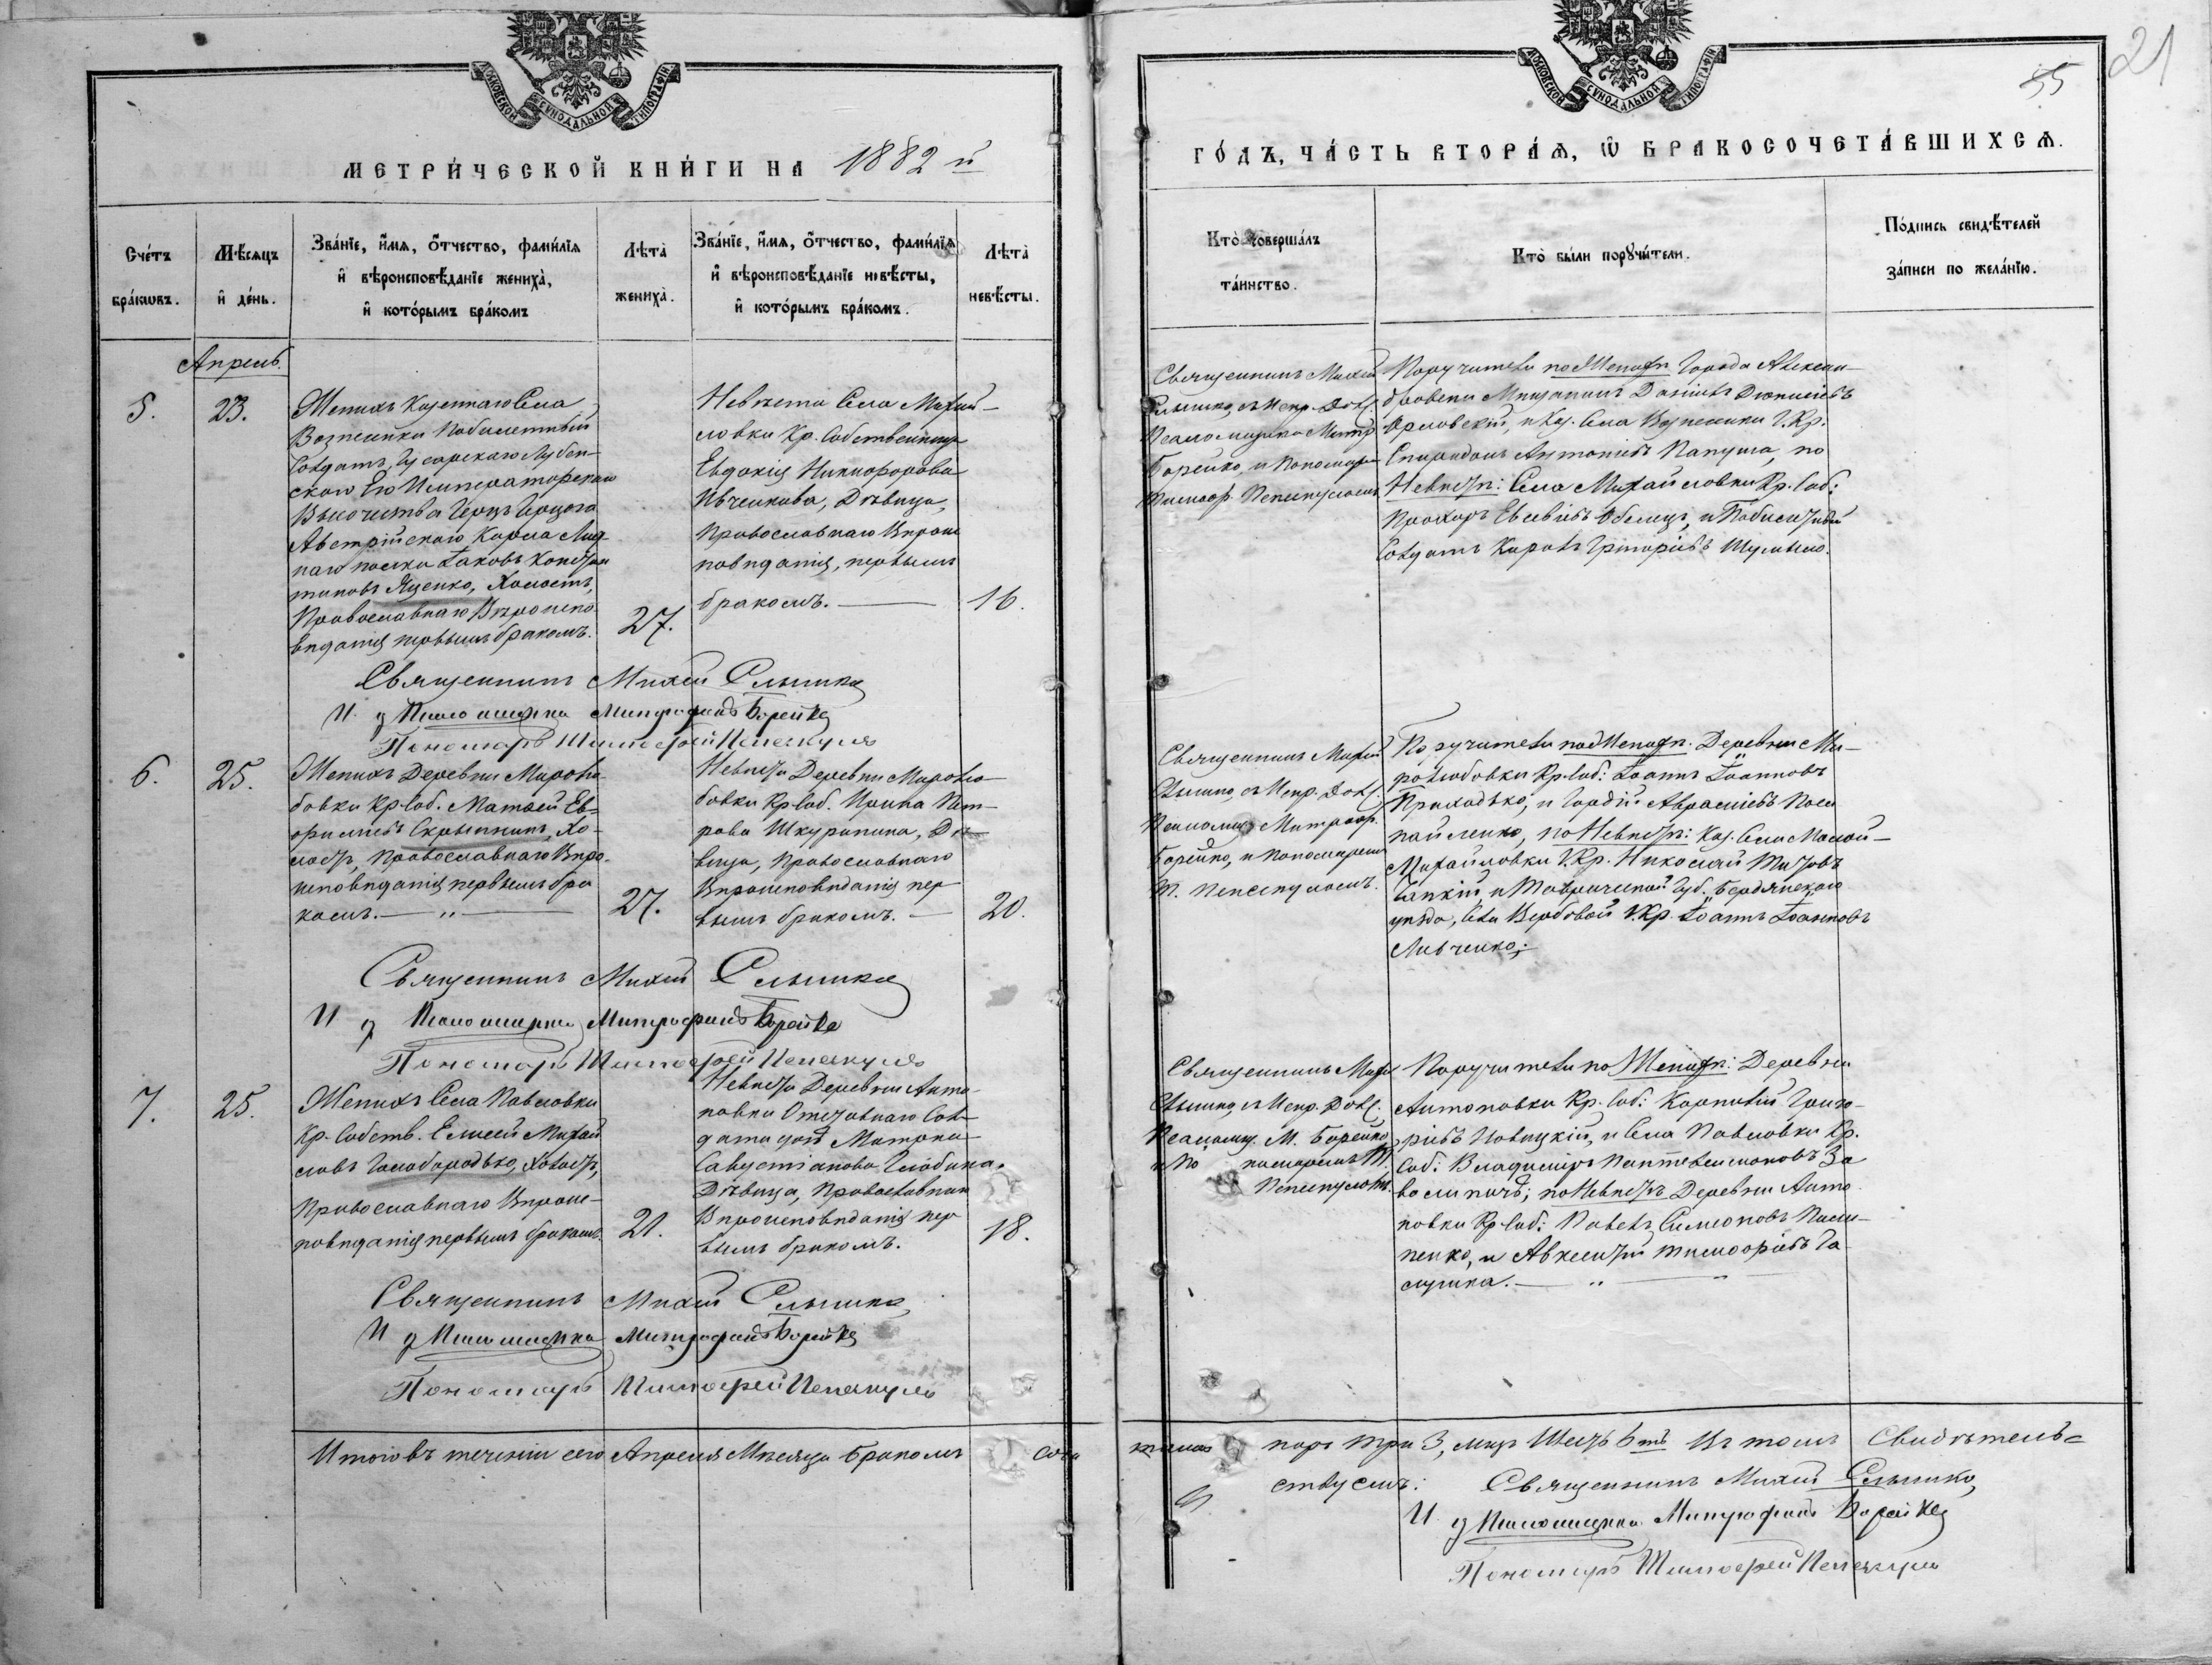 МОСКОВСКОЙ СѴНОДАЛЬНОЙ ТИПОГРАФІИ
МЕТРИ́ЧЕСКОЙ КНИ́ГИ НА 1882 й
Сче́тъ бра́ковъ.
Мѣ́сяцъ и де́нь.
Зва́нїе, и́мя, о́тчество, фами́лїя
и вѣроисповѣ́данїе жениха̀,
и кото́рымъ бра́комъ
Лѣта̀ жениха̀.
Зва́нїе, и́мя, о́тчество, фами́лїя
и вѣроисповѣ́данїе невѣ́сты,
и кото́рымъ бра́комъ.
Лѣта̀ невѣ́сты.
Апрель.
5.
23.
Женихъ Казеннаго Села
Вознесенки Побилетный
Солдатъ Гусарскаго Лубен-
скаго Его Императорскаго
Высочества Герцъ Герцога
Австрійскаго Карла Люд
наго полка Іаковъ Констан
тиновъ Яценко, Холостъ,
Православнаго Вѣроиспо
вѣданія первымъ бракомъ.
27.
Невѣста Села Михай-
ловки Кр. Собственница
Евдокія Никифорова
Ивченкова, Дѣвица,
Православнаго Вѣроис
повѣданія, первымъ
бракомъ.
16.
Священникъ Михаил Слышко
И д Псаломщика Митрофанъ Борейко
Пономарь Тимофей
6.
25.
Женихъ Деревни Миролю
бовки Кр. Соб. Матвей Ев-
фиміевъ Скрыпникъ, Хо-
лостъ, Православнаго Вѣро-
исповѣданія первымъ бра
комъ. — " —
27.
Невѣста Деревни Миролю
бовки Кр. Соб. Ирина Пет-
рова Шкурапина, Дѣ-
вица, Православнаго
Вѣроисповѣданія пер
вымъ бракомъ. —
20.
Священникъ Михаил Слышко
И д Псаломщика Митрофанъ Борейко
Пономарь Тимофей
7.
25.
Женихъ Села Павловки
Кр. Собств. Елисей Михай
ловъ Голобородько, Холостъ,
Православнаго Вѣроис-
повѣданія первымъ бракомъ.
21.
Невѣста Деревни Анто-
новки Отставнаго Сол-
дата дочь Матрона
Савустіанова
Дѣвица, Православнаго
Вѣроисповѣданія пер
вымъ бракомъ.
18.
Священникъ Михаил Слышко
И д Псаломщика Митрофанъ Борейко
Пономарь Тимофей
Итого въ теченіи сего Апреля Мѣсяца бракомъ соче
МОСКОВСКОЙ СѴНОДАЛЬНОЙ ТИПОГРАФІИ
55
21
ГО́ДЪ, ЧА́СТЬ ВТОРА́Я, Ѡ БРАКОСОЧЕТА́ВШИХСЯ.
Кто̀ соверша́лъ та́инство.
Кто̀ бы́ли порꙋчи́тели.
По́дпись свидѣ́телей за́писи по жела́нїю.
Священникъ Михаил
Слышко, съ Испр. Долж.
Псаломщика Митр.
Борейко, и Пономаремъ
Тимоф.
Поручители по Женихѣ Города Алексан-
дровска Мещанинъ Даніилъ Діонисіевъ
Орловскій, и Каз. Села Вознесенки Г. Кр.
Спиридонъ Антоніевъ Папуша, по
Невѣстѣ: Села Михайловки Кр. Соб:
Прохоръ Евсевіевъ и Побилетный
Солдатъ Карпъ Григоріевъ
Священникъ Михаил
Слышко, съ Испр. Долж.
Псаломщ. Митроф.
Борейко, и Пономаремъ
Т.
Поручители по Женихѣ. Деревни Ми-
ролюбовки Кр. Соб: Іоаннъ Іоанновъ
Приходько, и Гордій Авраміевъ
по Невѣстѣ: Каз. Села Малой-
Михайловки Г. Кр. Николай Титовъ
и Таврической Губ. Бердянскаго
уѣзда, Села Вербовой Г. Кр. Іоаннъ Іоанновъ
Ливченко;
Священникъ Михаил
Слышко, съ Испр. Долж.
Псаломщ. М. Борейко,
и По номаремъ Т.
Поручители по Женихѣ: Деревни
Антоновки Кр. Соб: Карпъ Григо-
ріевъ Новицкій, и Села Павловки Кр.
Соб: Владиміръ Пантелеимоновъ
по Невѣстѣ Деревни Анто
новки Кр. Соб: Павелъ Симеоновъ
и Авксентій Тимофіевъ Га-
лушка. — " —
талось паръ три 3, лицъ Шесть 6ть Въ томъ Свидѣтель=
ствуемъ: Священникъ Михаил Слышко,
И д Псаломщика Митрофанъ Борейко
Пономарь Тимофей